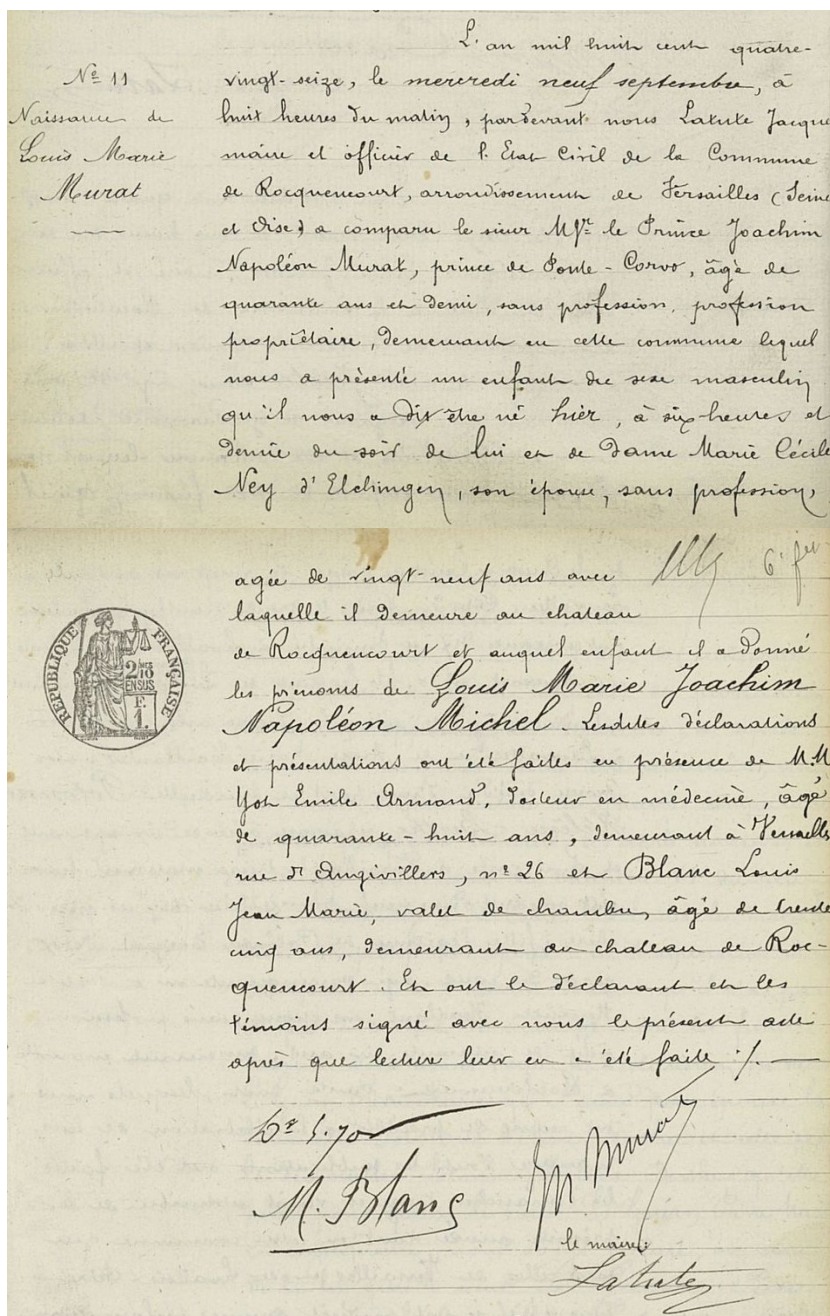 L'an mil huit cent quatre-
Nº 11
Naissance de
Louis Marie
Murat
vingt-seize, le mercredi neuf septembre, à
huit heures du matin, pardevant nous Latute Jacque
maire et officier de l'Etat Civil de la Commune
de Rocquencourt, arrondissement de Versailles (Seine
et Oise) a comparu le sieur Mgr le Prince Joachim
Napoléon Murat, prince de Ponte-Corvo, âgé de
quarante ans et demi, sans profession, profession
propriétaire, demeurant en cette commune lequel
nous a présenté un enfant du sexe masculin
qu'il nous a dit être né hier, à six heures et
demie du soir de lui et de Dame Marie Cécile
Ney d'Elchingen, son épouse, sans profession,
agée de vingt-neuf ans avec
6e fet
laquelle il demeure au chateau
de Rocquencourt et auquel enfant il a donné
les prénoms de Louis Marie Joachim
Napoléon Michel. Lesdites déclarations
et présentations ont été faites en présence de M.M
Yot Emile Armand, docteur en médecine, âgé
de quarante-huit ans, demeurant à Versailles
rue d'Angivillers, nº 26 et Blanc Louis
Jean Marie, valet de chambre, âgé de trente
cinq ans, demeurant au chateau de Roc-
quencourt. Et ont le déclarant et les
témoins signé avec nous le présent acte
après que lecture leur en a été faite ./.
RÉPUBLIQUE FRANÇAISE
2/10 EN SUS
F. 1.
Dr E. Yot
Murat
M. Blanc
le maire:
Latute